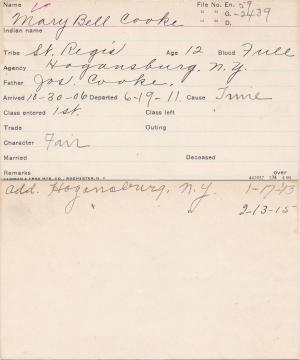 Name File No. En. 59
Mary Bell Cooke " " G. -2439
Indian name " " D.
Tribe St. Regis Age 12 Blood Full
Agency Hogansburg, N.Y.
Father Jos Cooke.
Arrived 10-30-06 Departed 6-19-11. Cause Time
Class entered 1st. Class left
Trade Outing
Character Fair
Married Deceased
Remarks over
MFG. CO., ROCHESTER, N. Y.
add. Hogansburg, N.Y. 1-17-13
" " 2-13-15